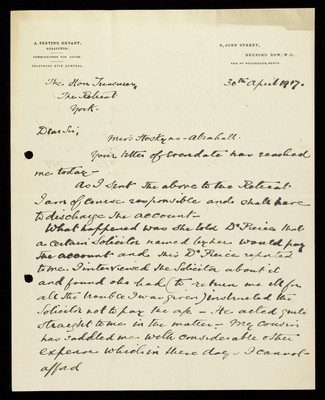 A. PESTING BRYANT,
SOLICITOR.
COMMISSIONER FOR OATHS.
TELEPHONE 6718 CENTRAL.
8, JOHN STREET,
BEDFORD ROW, W.C.
AND AT
30th April 1917.
The Hon Treasurer,
The Retreat
York.
Dear Sir,
Miss Hoskyns-Abrahall.
Your letter of even date has reached
me today –
As I sent the above to the Retreat
I am of course responsible and shall have
to discharge the account –
What happened was she told Dr Pierce that
a certain Solicitor named by her would pay
the account and this Dr Pierce reported
to me. I interviewed the Solicitor about it
and found she had (to return me
all the trouble I was given) instructed the
Solicitor not to pay the a/c – He acted quite
straight to me in the matter – My cousin
has saddled me with considerable other
expense which in these days I cannot
afford